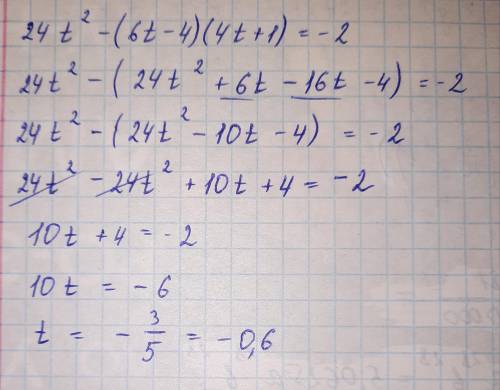 24t² - (6t - 4)(4t + 1) = -2
24t² - (24t² + 6t - 16t - 4) = -2
24t² - (24t² - 10t - 4) = -2
24t² - 24t² + 10t + 4 = -2
10t + 4 = -2
10t = -6
t = -3/5 = -0,6